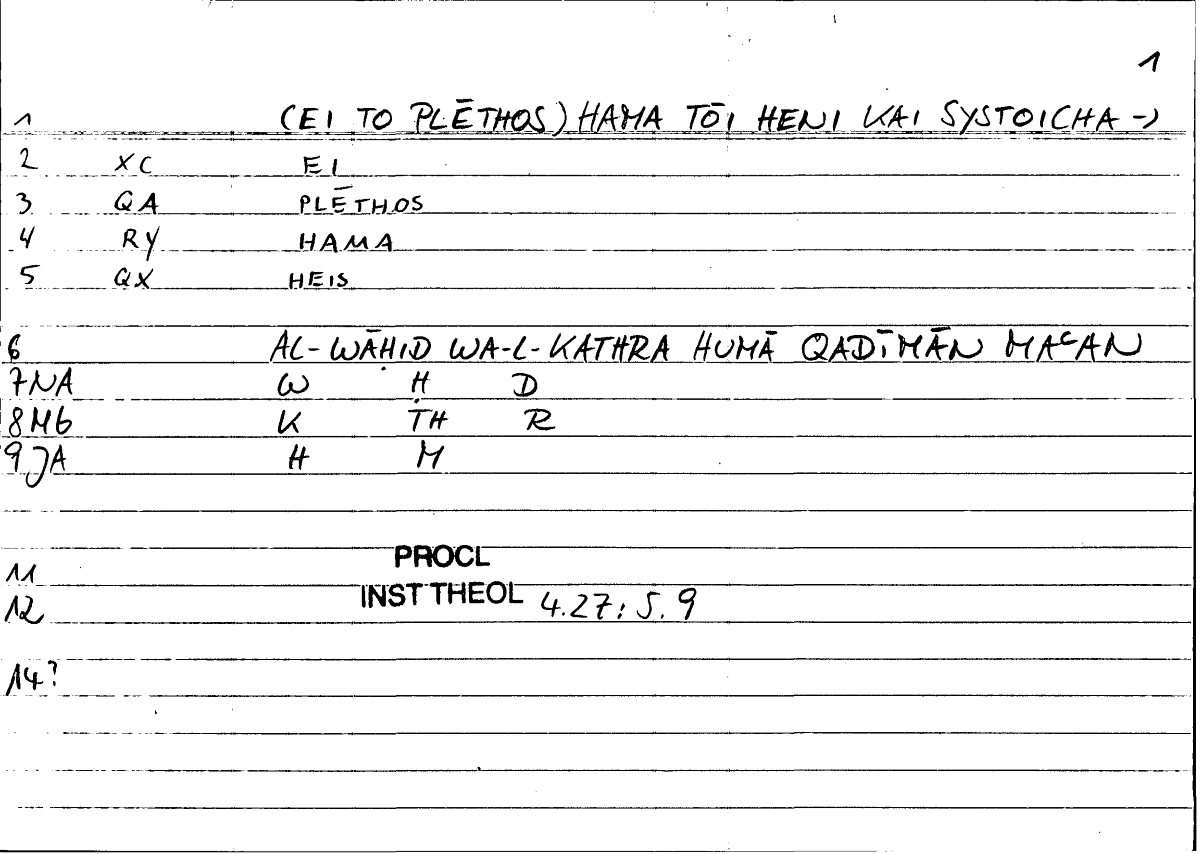 1
1 (EI TO PLĒTHOS) HAMA TŌI HENI KAI SYSTOICHA →
2 XC EI
3 QA PLĒTHOS
4 RY HAMA
5 QX HEIS
6 AL-WĀḤID WA-L-KATHRA HUMĀ QADĪMĀN MAᶜAN
7 NA W Ḥ D
8 MB K TH R
9 JA H M
11 PROCL
12 INST THEOL 4.27; 5.9
14?